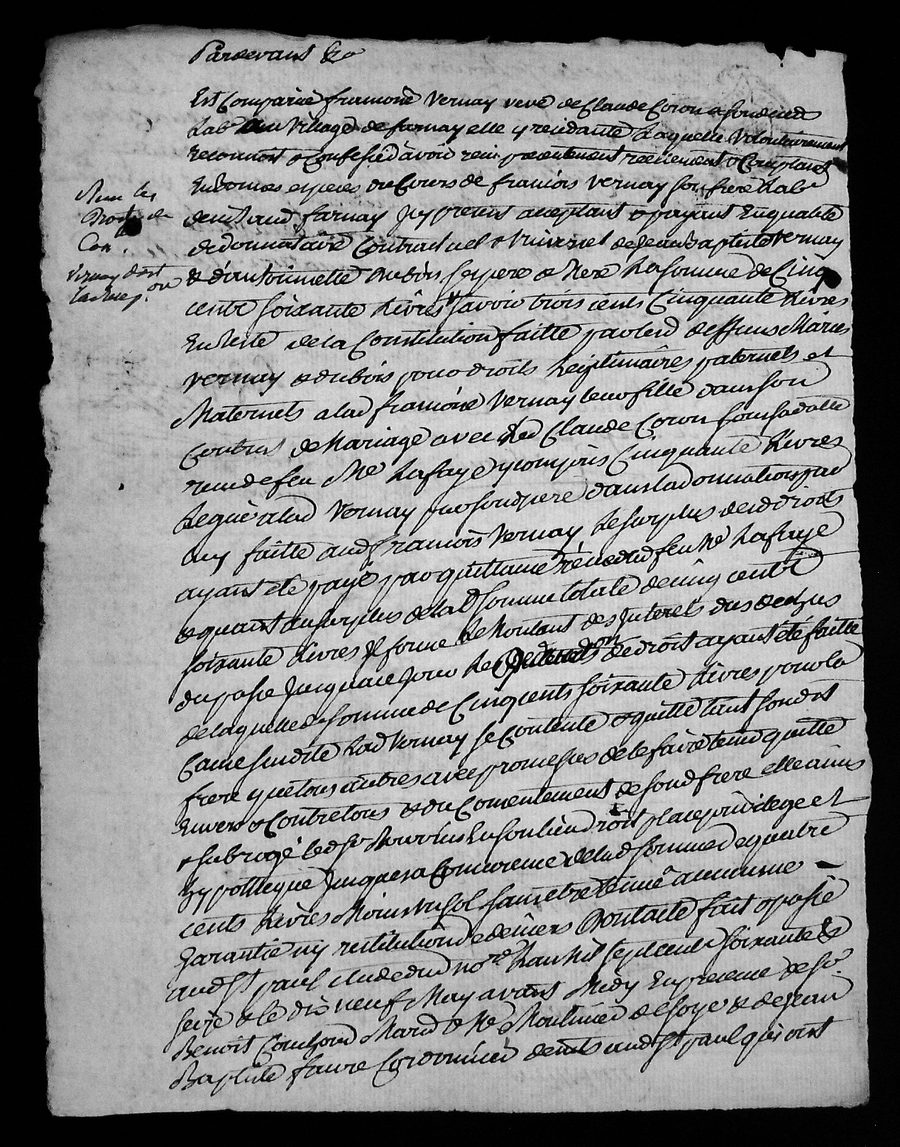 Pardevant &c
Est Comparüe francoise Vernay veve de Claude Coron
Lab^r au village de farnay elle y residante Laquelle volontairement
reconnoit & Confesse d'avoir reçu presentement reellement & Comptant
En bonnes especes du Cours de francois Vernay son frere Lab^r
demt aud farnay Icy present acceptant & payant En qualité
de donnataire Contractuel & Universel de Jean Baptiste Vernay
& d'antoinnette Dubois ses pere & Mere La somme de Cinq
cents soixante Livres savoir trois cents Cinquante Livres
En reste de la Constitution faitte par lesd deffuns Maries
Vernay & dubois pour droits Legitimaires paternels et
Maternels a lad francoise Vernay leur fille dans son
Contrat de Mariage avec led Claude Coron sous sa datte
reçu de feu Me Lafaye y compris Cinquante Livres
Legué a lad Vernay par sond pere dans la donnation par
luy faitte aud francois Vernay, Le surplus desd droits
ayant eté payé par quittance reçue dud feu Me Lafaye
& quant au surplus de lad somme totale de cinq cents
soixante Livres Il forme Le Montant des Interets dus & echus
du passé Jusqua ce Jour Le de droit ayant été faitte
de laquelle de somme de Cinq cents soixante Livres pour la
Cause susdite Lad Vernay se Contente & quitte tant sondit
frere que tous autres avec promesses de le faire tenir quitte
Envers & Contre tous & du Consentement de sond frere elle a mis
& subrogé led s^r En son lieu droit place privilege et
hypotheque Jusques a Concurence de lad somme de quatre
cents Livres Moins un sol sans etre tenue a aucune
Garantie ny restitution de deniers Dont acte fait & passé
aud St paul etude dud no^re Lan Mil sept cents soixante &
seize & le dix neuf May avant Midy En presence de s^r
Benoit Coulson Mard & Me Moulinier de soye & de Jean
Baptiste faure Cordonnier demts aud St paul qui ont
Pour les
Droits de
Con.
Vernay dont